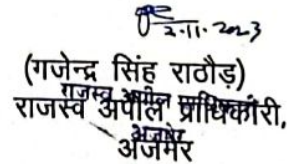 2.11.2023
(गजेन्द्र सिंह राठौड़)
राजस्व अपील प्राधिकारी,
अजमेर